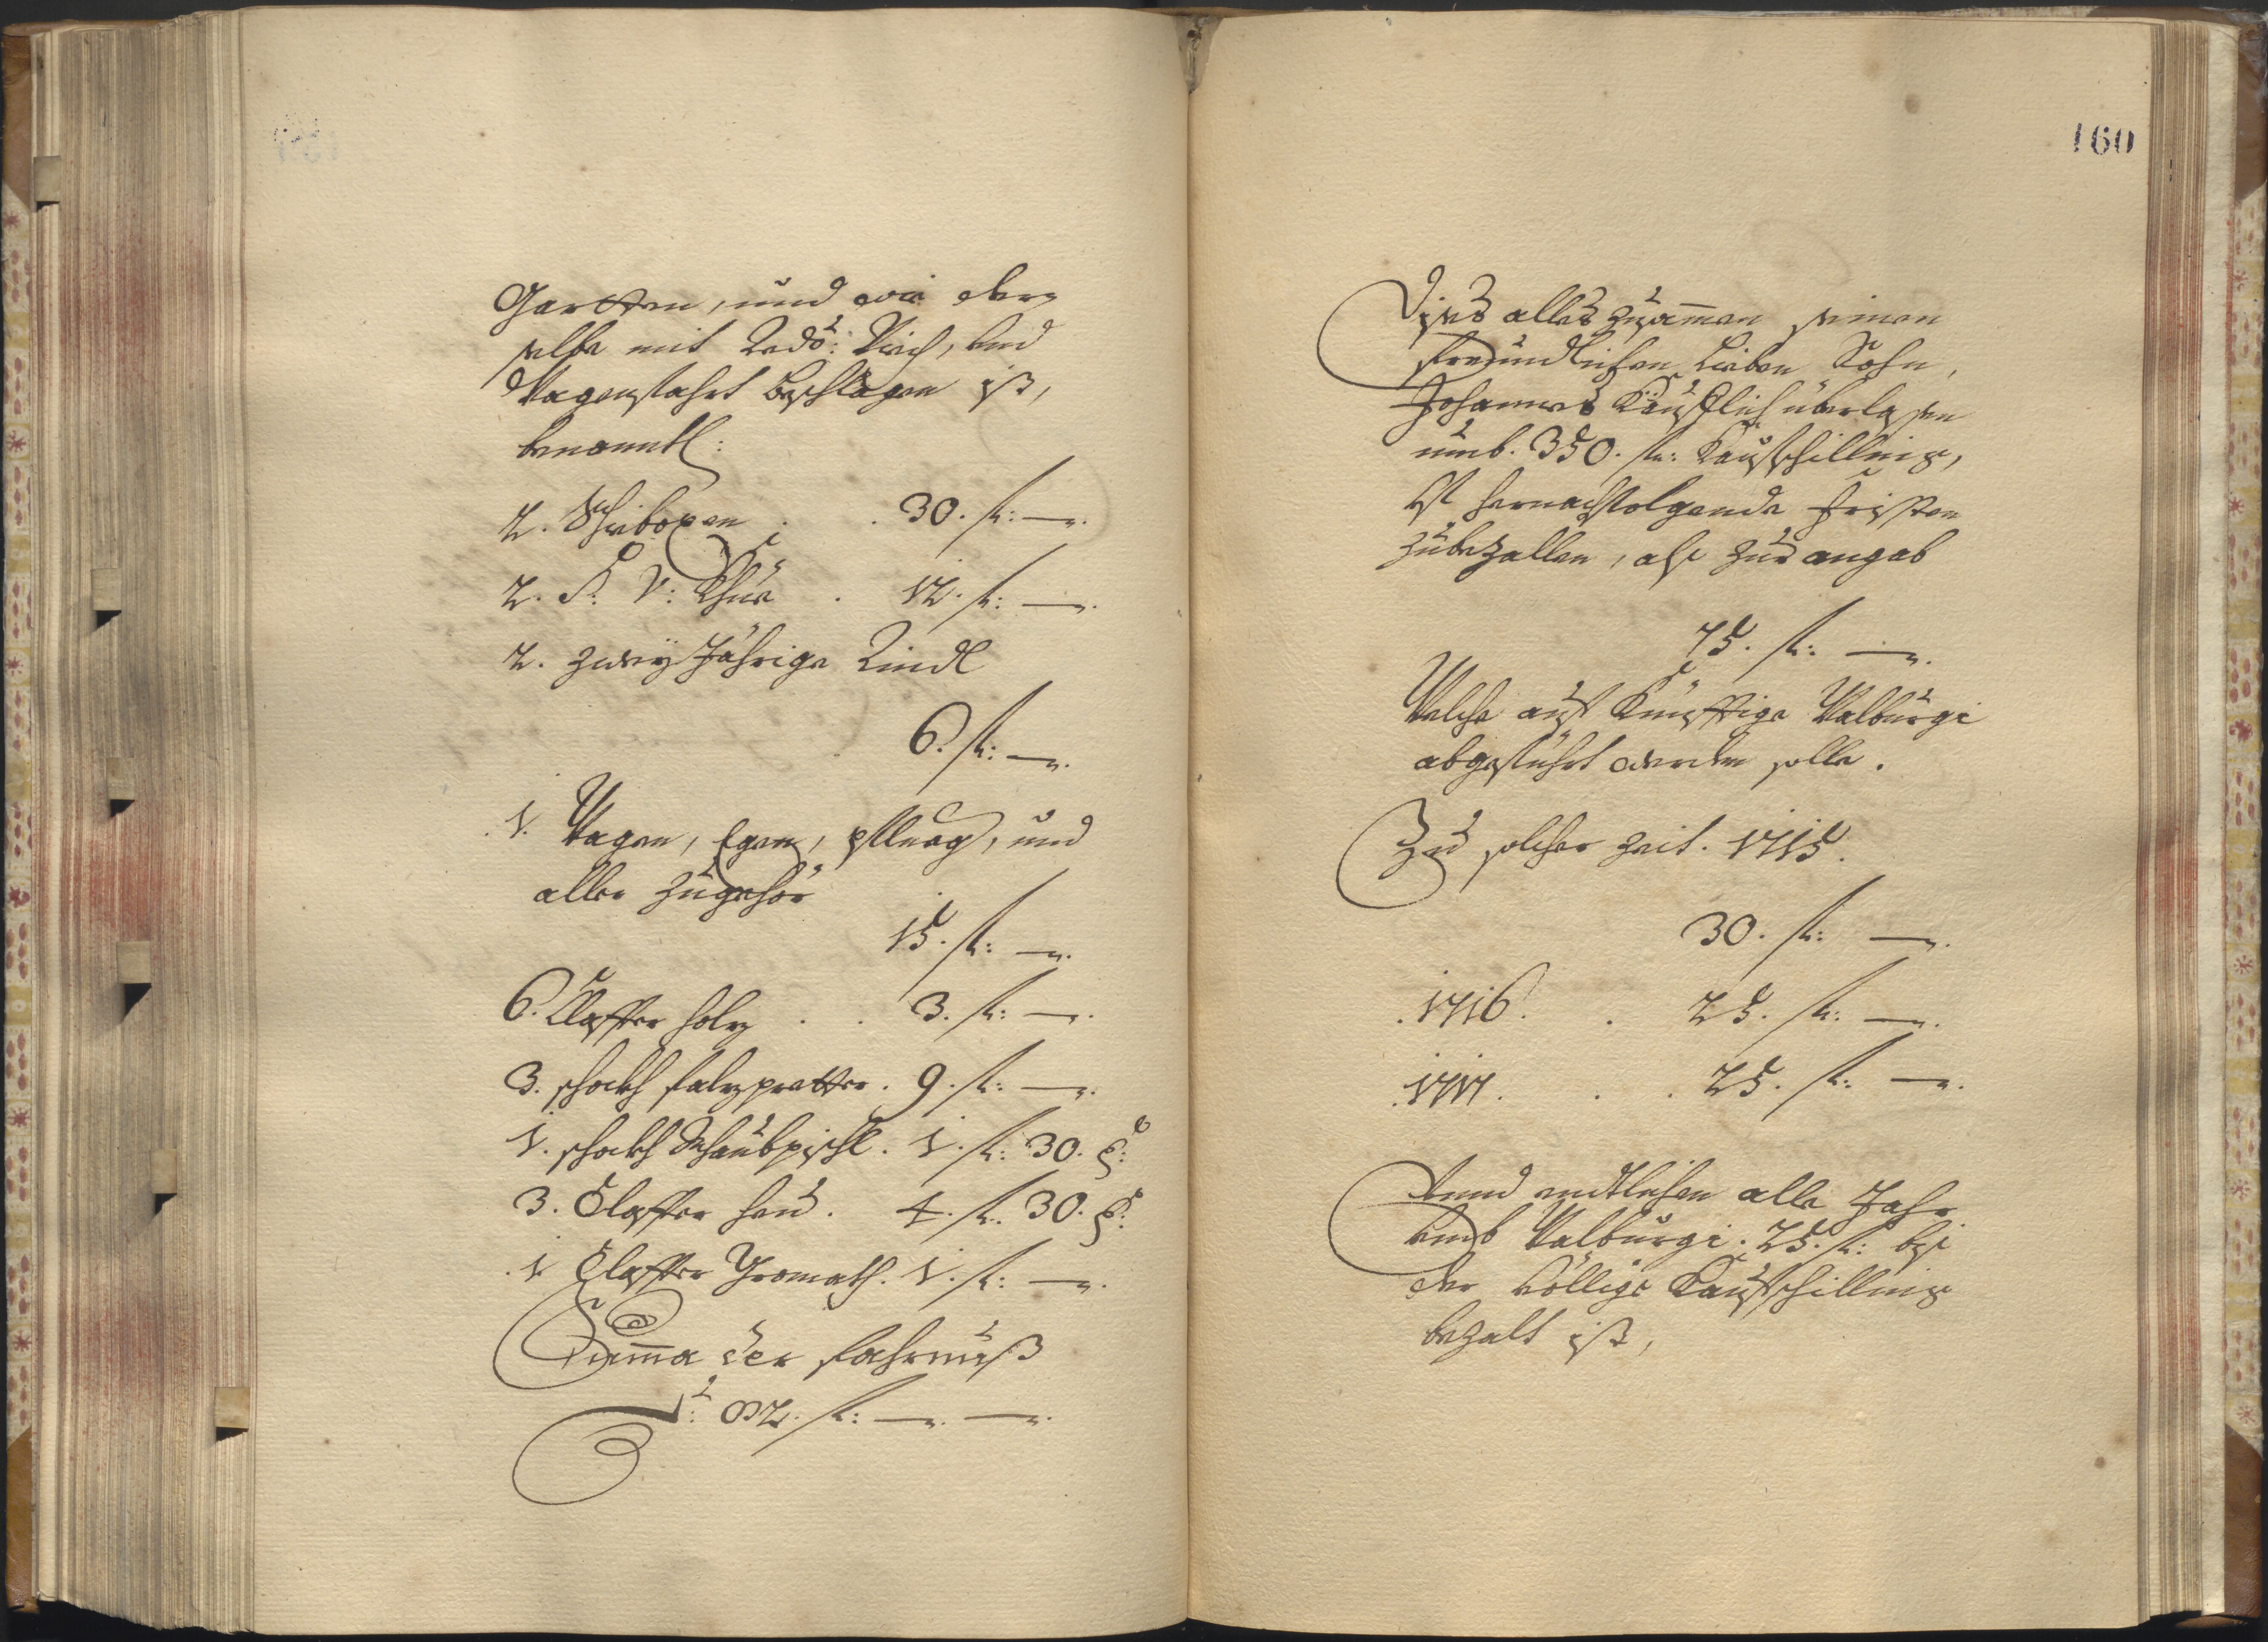 Gartten, und wie der-
selbe mit Redo: Viech, und
Wagenfahrt beschlagen ist,
benanntl:
2. Schiboxen . . 30. fl: —.
2. S: V: Khüe . 12. fl: —.
2. zwey Jährige Rindl
6. fl: —.
1. Wagen, Egen, pflueg, und
aller zugehör
15. fl: —.
6. Claffter holz . . 3. fl: —.
3. schockh falzpretter . 9. fl: —.
1. schockh Schaubpischl . 1. fl: 30. x:
3. Claffter heu . 4. fl: 30. x:
1 Claffter Gromath . 1. fl: —.
Suma der fahrnuß
82. fl: —. —.
160
Dises alles zusamen seinen
freundlichen lieben Sohn,
Johannes Kaüfflich überlassen
umb. 350. fl: Kaufschilling,
Jst hernachfolgende fristen
zubezallen, alß zur angab
75. fl: —.
Welche auf Künfftige Walburgi
abgeführt werden solle.
Zu solcher zeit. 1715.
30. fl: —.
.1716. . 25. fl: —.
.1717. . . 25. fl: —.
Vnnd endtlichen alle Jahr
umb Walburgi. 25. fl: biß
der völlige Kaufschilling
bezalt ist,